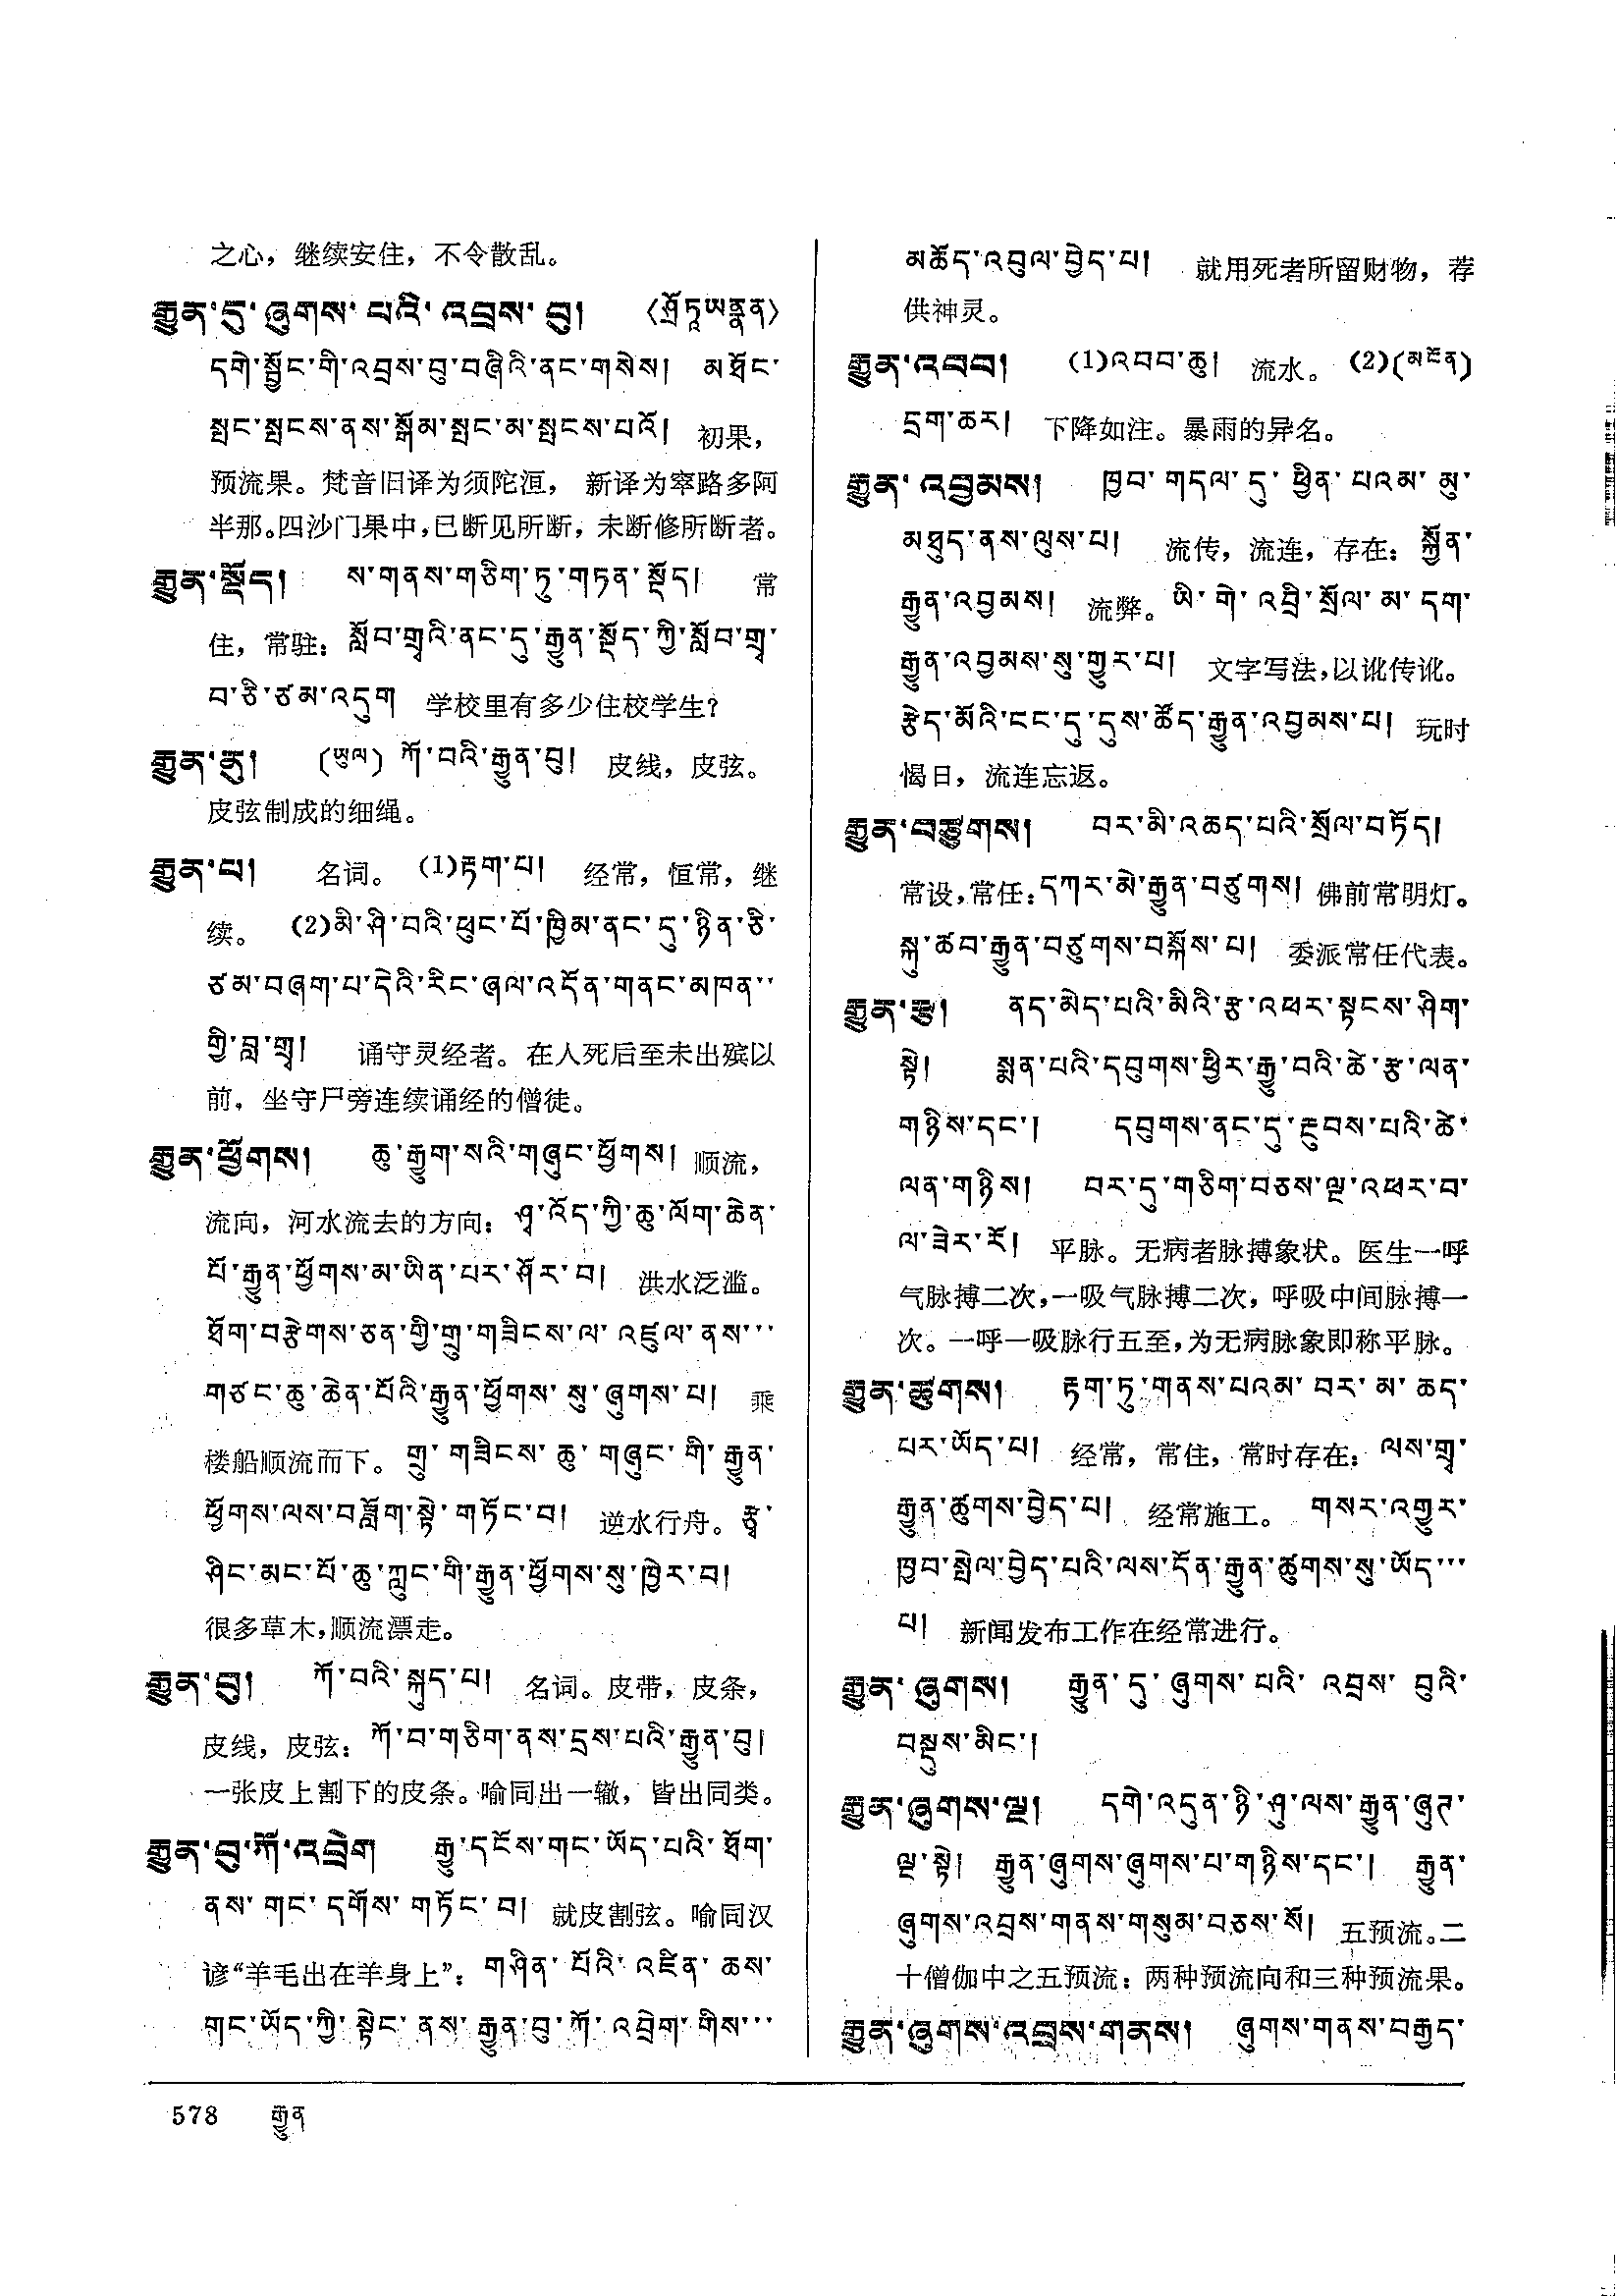 之心，继续安住，不令散乱。
རྒྱུན་དུ་ཞུགས་པའི་འབྲས་བུ། 〈ཤྲོཏཱཨནྣན〉
དགེ་སྦྱོང་གི་འབྲས་བུ་བཞིའི་ནང་གསེས། མཐོང་
སྤང་སྤངས་ནས་སྒོམ་སྤང་མ་སྤངས་པའོ། 初果，
预流果。梵音旧译为须陀洹，新译为窣路多阿
半那。四沙门果中，已断见所断，未断修所断者。
རྒྱུན་སྡོད། ས་གནས་གཅིག་ཏུ་གཏན་སྡོད། 常
住，常驻：སློབ་གྲྭའི་ནང་དུ་རྒྱུན་སྡོད་ཀྱི་སློབ་གྲྭ་
བ་ཅི་ཙམ་འདུག 学校里有多少住校学生？
རྒྱུན་ནུ། (ཡུལ) ཀོ་བའི་རྒྱུན་བུ། 皮线，皮弦。
皮弦制成的细绳。
རྒྱུན་པ། 名词。(1)རྟག་པ། 经常，恒常，继
续。(2)མི་ཤི་བའི་ཕུང་པོ་ཁྱིམ་ནང་དུ་ཉིན་ཅི་
ཙམ་བཞག་པ་དེའི་རིང་ཞལ་འདོན་གནང་མཁན་་
གྱི་བླ་གྲྭ། 诵守灵经者。在人死后至未出殡以
前，坐守尸旁连续诵经的僧徒。
རྒྱུན་ཕྱོགས། ཆུ་རྒྱུག་སའི་གཞུང་ཕྱོགས། 顺流，
流向，河水流去的方向：ཤྭ་འོད་ཀྱི་ཆུ་ལོག་ཆེན་
པོ་རྒྱུན་ཕྱོགས་མ་ཡིན་པར་ཤོར་བ། 洪水泛滥。
ཐོག་བརྩེགས་ཅན་གྱི་གྲུ་གཟིངས་ལ་འཛུལ་ནས་་་
གཙང་ཆུ་ཆེན་པོའི་རྒྱུན་ཕྱོགས་སུ་ཞུགས་པ། 乘
楼船顺流而下。གྲུ་གཟིངས་ཆུ་གཞུང་གི་རྒྱུན་
ཕྱོགས་ལས་བཟློག་སྟེ་གཏོང་བ། 逆水行舟。རྩྭ་
ཤིང་མང་པོ་ཆུ་ཀླུང་གི་རྒྱུན་ཕྱོགས་སུ་ཁྱེར་བ།
很多草木，顺流漂走。
རྒྱུན་བུ། ཀོ་བའི་སྐུད་པ། 名词。皮带，皮条，
皮线，皮弦：ཀོ་བ་གཅིག་ནས་དྲས་པའི་རྒྱུན་བུ།
一张皮上割下的皮条。喻同出一辙，皆出同类。
རྒྱུན་བུ་ཀོ་འབྲེག རྒྱུ་དངོས་གང་ཡོད་པའི་ཐོག་
ནས་གང་དགོས་གཏོང་བ། 就皮割弦。喻同汉
谚“羊毛出在羊身上”：གཤིན་པོའི་འཛིན་ཆས་
གང་ཡོད་ཀྱི་སྟེང་ནས་རྒྱུན་བུ་ཀོ་འབྲེག་གིས་་་
མཆོད་འབུལ་བྱེད་པ། 就用死者所留财物，荐
供神灵。
རྒྱུན་འབབ། (1)འབབ་ཆུ། 流水。(2)(མངོན)
དྲག་ཆར། 下降如注。暴雨的异名。
རྒྱུན་འབྱམས། ཁྱབ་གདལ་དུ་ཕྱིན་པའམ་མུ་
མཐུད་ནས་ལུས་པ། 流传，流连，存在：སྐྱོན་
རྒྱུན་འབྱམས། 流弊。ཡི་གེ་འབྲི་སྲོལ་མ་དག་
རྒྱུན་འབྱམས་སུ་གྱུར་པ། 文字写法，以讹传讹。
རྩེད་མོའི་ངང་དུ་དུས་ཚོད་རྒྱུན་འབྱམས་པ། 玩时
愒日，流连忘返。
རྒྱུན་བཙུགས། བར་མི་འཆད་པའི་སྲོལ་བཏོད།
常设，常任：དཀར་མེ་རྒྱུན་བཙུགས། 佛前常明灯。
སྐུ་ཚབ་རྒྱུན་བཙུགས་བསྐོས་པ། 委派常任代表。
རྒྱུན་རྩ། ནད་མེད་པའི་མིའི་རྩ་འཕར་སྟངས་ཤིག་
སྟེ། སྨན་པའི་དབུགས་ཕྱིར་རྒྱུ་བའི་ཚེ་རྩ་ལན་
གཉིས་དང་། དབུགས་ནང་དུ་རྔུབས་པའི་ཚེ་
ལན་གཉིས། བར་དུ་གཅིག་བཅས་ལྔ་འཕར་བ་
ལ་ཟེར་རོ། 平脉。无病者脉搏象状。医生一呼
气脉搏二次，一吸气脉搏二次，呼吸中间脉搏一
次。一呼一吸脉行五至，为无病脉象即称平脉。
རྒྱུན་ཚུགས། རྟག་ཏུ་གནས་པའམ་བར་མ་ཆད་
པར་ཡོད་པ། 经常，常住，常时存在：ལས་གྲྭ་
རྒྱུན་ཚུགས་བྱེད་པ། 经常施工。གསར་འགྱུར་
ཁྱབ་སྤེལ་བྱེད་པའི་ལས་དོན་རྒྱུན་ཚུགས་སུ་ཡོད་་་
པ། 新闻发布工作在经常进行。
རྒྱུན་ཞུགས། རྒྱུན་དུ་ཞུགས་པའི་འབྲས་བུའི་
བསྡུས་མིང་།
རྒྱུན་ཞུགས་ལྔ། དགེ་འདུན་ཉི་ཤུ་ལས་རྒྱུན་ཞུཊ་
ལྔ་སྟེ། རྒྱུན་ཞུགས་ཞུགས་པ་གཉིས་དང་། རྒྱུན་
ཞུགས་འབྲས་གནས་གསུམ་བཅས་སོ། 五预流。二
十僧伽中之五预流：两种预流向和三种预流果。
རྒྱུན་ཞུགས་འབྲས་གནས། ཞུགས་གནས་བརྒྱད་
578 རྒྱུན